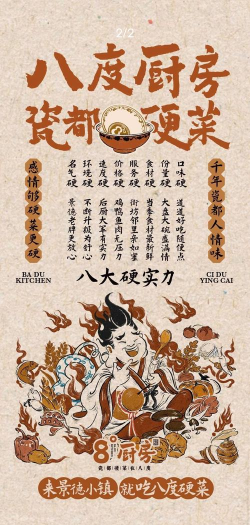 2/2
八度厨房
瓷都硬菜
千年瓷都人情味
感情够硬菜更硬
口味硬 道道好吃随便点
份量硬 大盘大碗盛满情
食材硬 当季食材最新鲜
服务硬 街坊邻里亲如蜜
价格硬 鸡鸭鱼肉无压力
速度硬 后厨大军有实力
环境硬 不断升级为舒心
名气硬 景德老牌更放心
BA DU
KITCHEN
八大硬实力
CI DU
YING CAI
8°厨房
瓷都硬菜在八度
来景德小镇 就吃八度硬菜